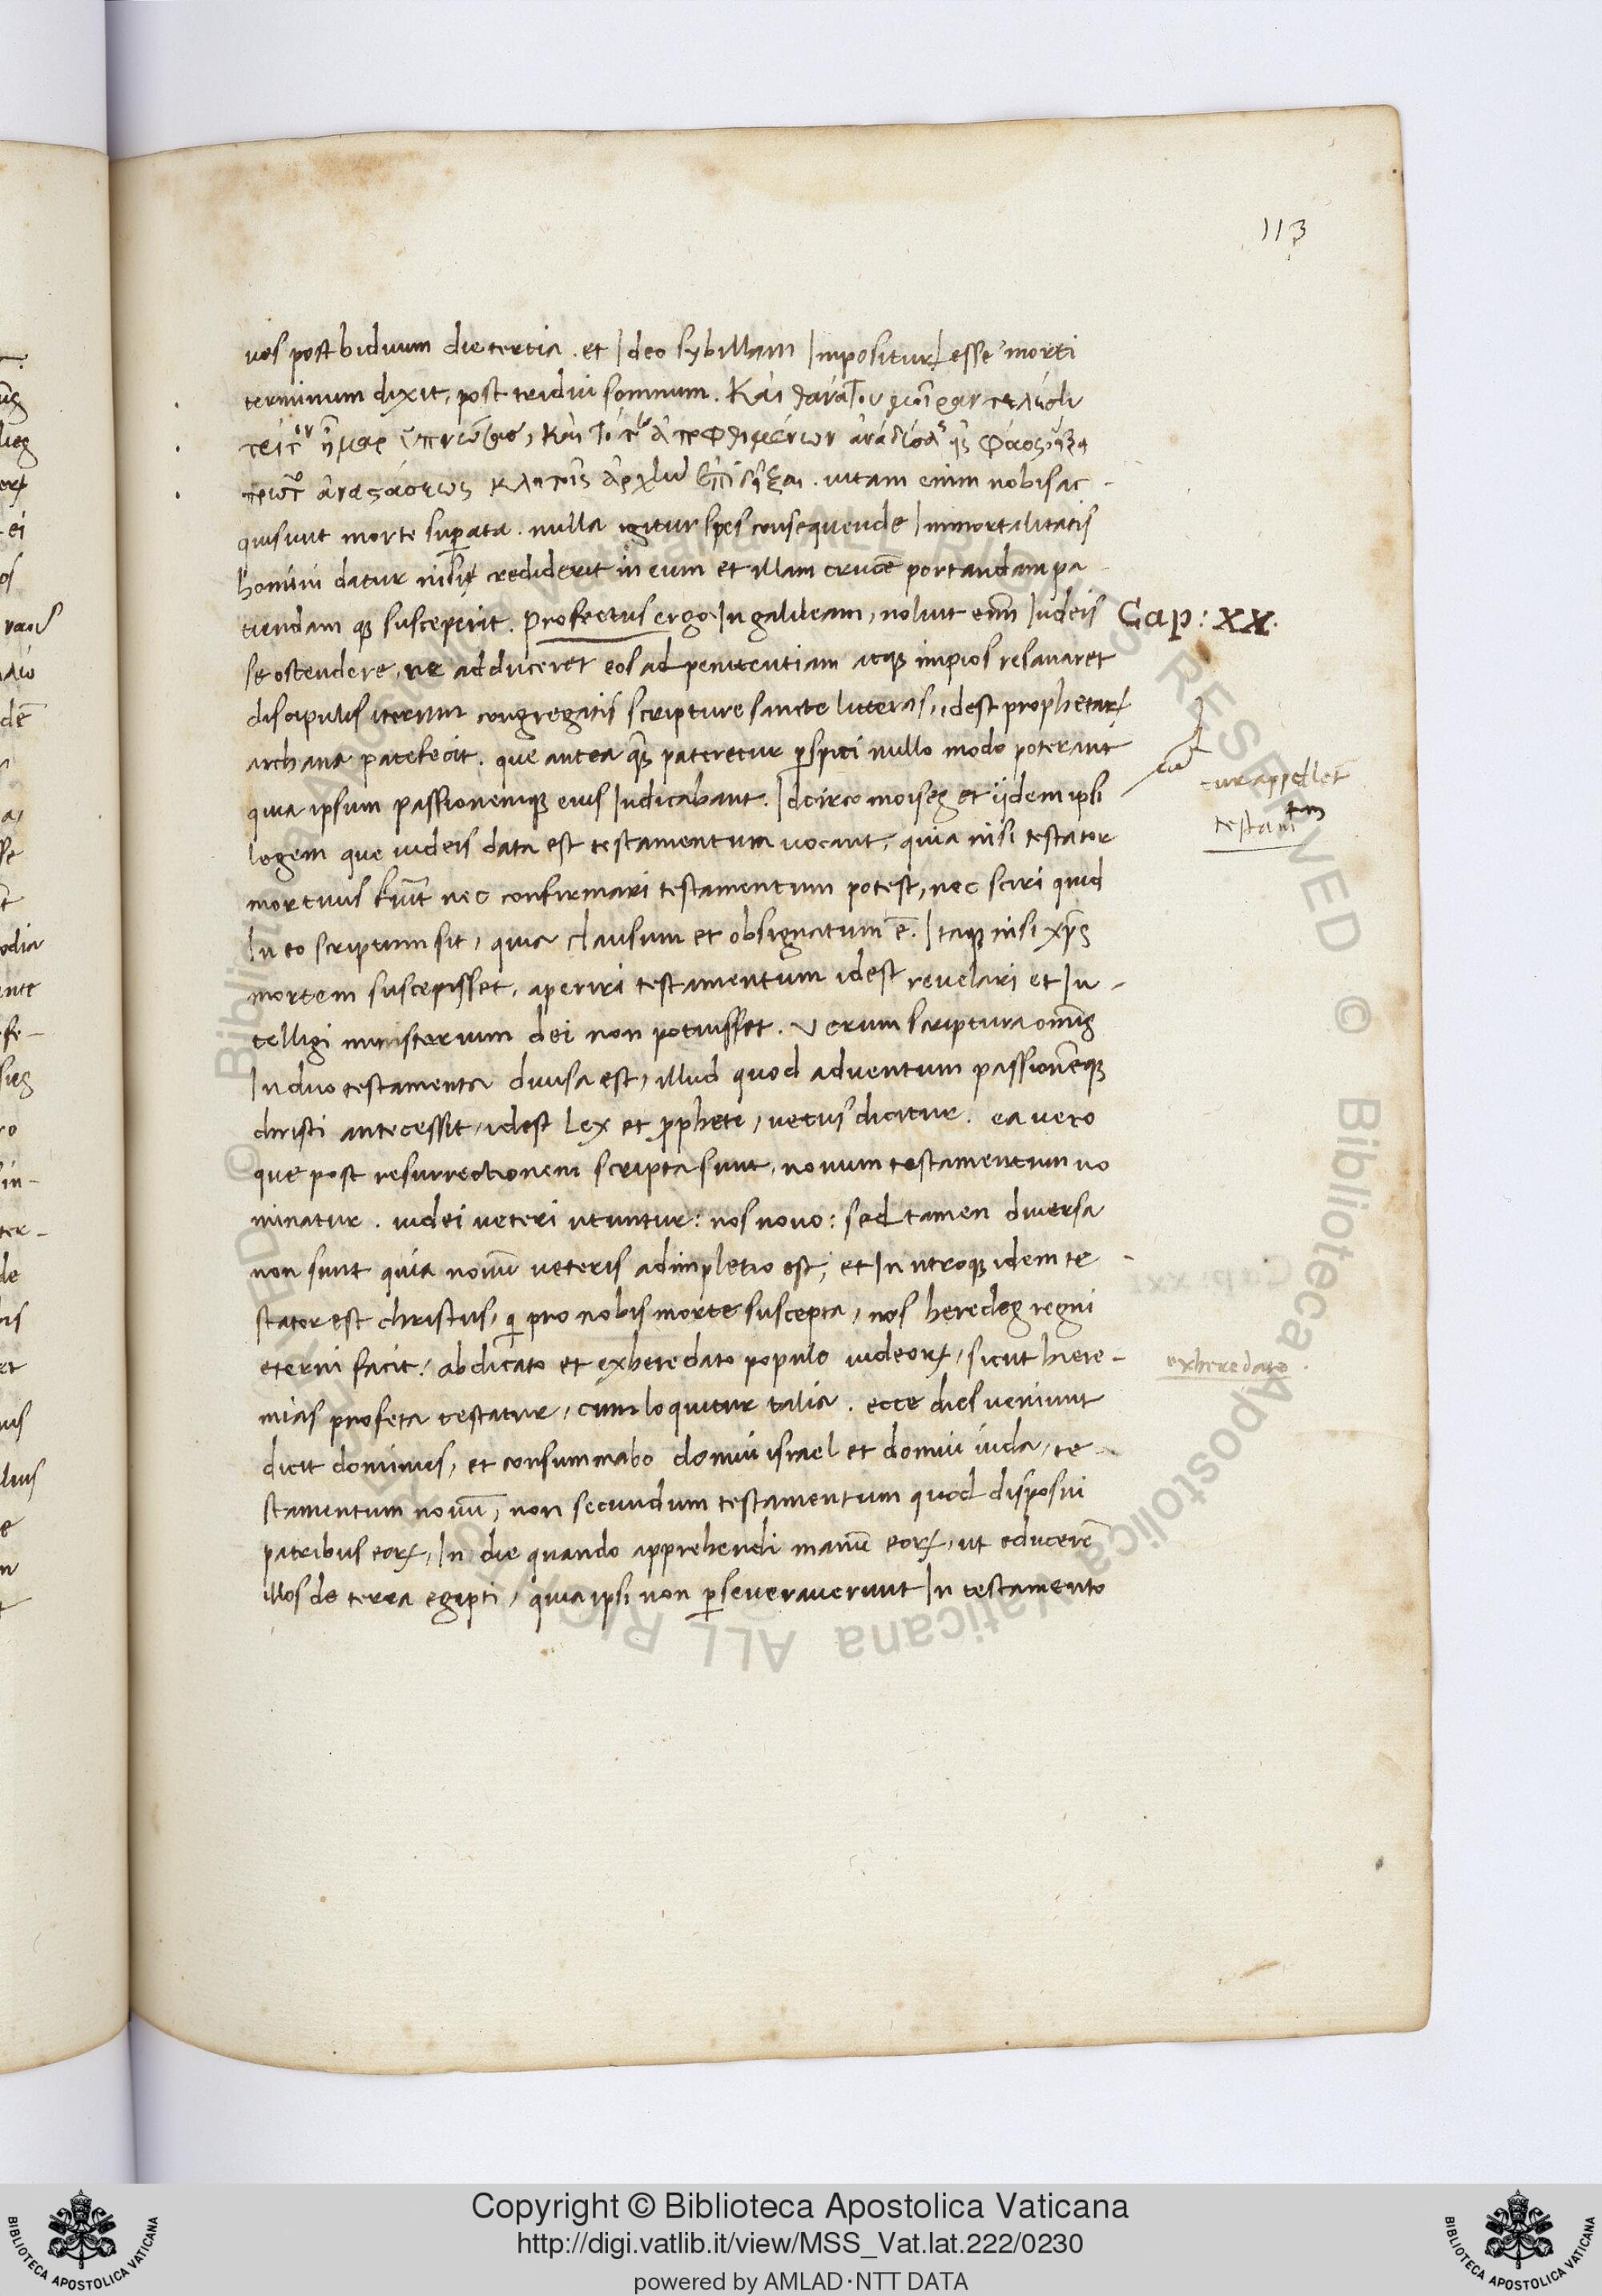 113
uos post biduum die tertia. et Ideo sybillam Impositurꝝ esse morti
terminum dixit, post tridui somnum. Καὶ θανάτου μοῖραν τελέσει
τρίτον ἦμαρ ὑπνώσας, καὶ τότε ἀπὸ φθιμένων
πρῶτον ἀναστάσεως κλητοῖς ἀρχὴν . uitam enim nobis ac
quisiuit morte suꝑata. nulla igitur spes consequende Immortalitatis
homini datur nisi crediderit in eum et illam crucē portandam pa
tiendam qꝫ susceperit. Profectus ergo In galileam, noluit eni͂ Iudeis
Cap: XX.
se ostendere, ne adduceret eos ad penitentiam atqꝫ impios resanaret
discipulis iterum congregatis scripture sancte litteras, idest prophetarꝝ
archana patefecit. que antea qꝫ pateretur ꝑspici nullo modo poterant
quia ipsum passionemqꝫ eius Iudicabant. Idcirco moises et ijdem ipsi
cur appelleť
testamtm
legem que iudeis data est testamentum uocant, quia nisi testator
mortuus nec confirmari testamentum potest, nec sciri quid
In eo scriptum sit, quia clausum et obsignatum ē. Itaqꝫ nisi xp̄s
mortem suscepisset, aperiri testamentum idest reuelari et In-
telligi misterium dei non potuisset. Verum scriptura omīs
In duo testamenta diuisa est, illud quod aduentum passionēqꝫ
christi antecessit, idest Lex et ꝓphete, uetus dicitur. ea uero
que post resurrectionem scripta sunt, nouum testamentum no
minatur. iudei ueteri utuntur: nos nouo: sed tamen diuersa
non sunt quia nouū ueteris adimpletio est, et In utroqꝫ idem te-
stator est christus, q̇ pro nobis morte suscepta, nos heredes regni
eterni facit, abdicato et exheredato populo iudeorꝝ, sicut hiere-
exheredato
mias profeta testatur, cum loquitur talia. ecce dies ueniunt
dicit dominus, et consummabo domui israel et domui iuda, te
stamentum nouū, non secundum testamentum quod disposui
patribus eorꝝ, In die quando apprehendi manū eorꝝ, ut educerē
illos de terra egipti, quia ipsi non ꝑseuerauerunt In testamento
Copyright © Biblioteca Apostolica Vaticana
http://digi.vatlib.it/view/MSS_Vat.lat.222/0230
powered by AMLAD·NTT DATA
BIBLIOTECA APOSTOLICA VATICANA
BIBLIOTECA APOSTOLICA VATICANA